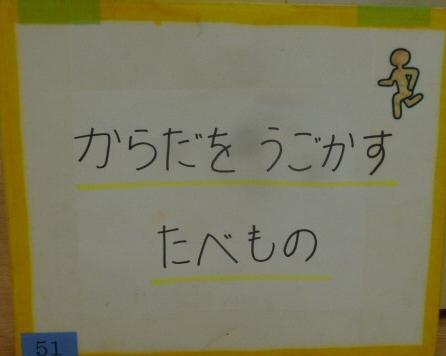 からだを うごかす
たべもの
51